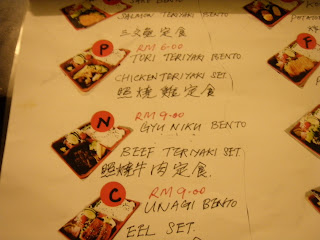 SALMON TERIYAKI BENTO
三文魚定食
P
RM 6.00
TORI TERIYAKI BENTO
CHICKEN TERIYAKI SET.
照燒雞定食
N
RM 9.00
GYU NIKU BENTO
BEEF TERIYAKI SET.
照燒牛肉定食.
C
RM 9.00
UNAGI BENTO
EEL SET.
F